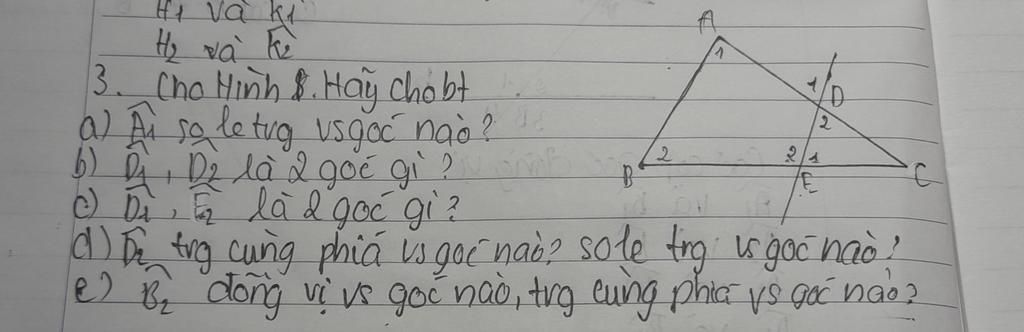 H1 và K1
H2 và K2
3. Cho Hình 8. Hãy cho bt
a) Â1 so le trg vs góc nào?
b) D̂1, D̂2 là 2 góc gì?
c) D̂1, Ê2 là 2 góc gì?
d) D̂2 trg cùng phía vs góc nào? so le trg vs góc nào?
e) B̂2 đồng vị vs góc nào, trg cùng phía vs góc nào?
A
1
1
D
2
2
2
1
B
E
C